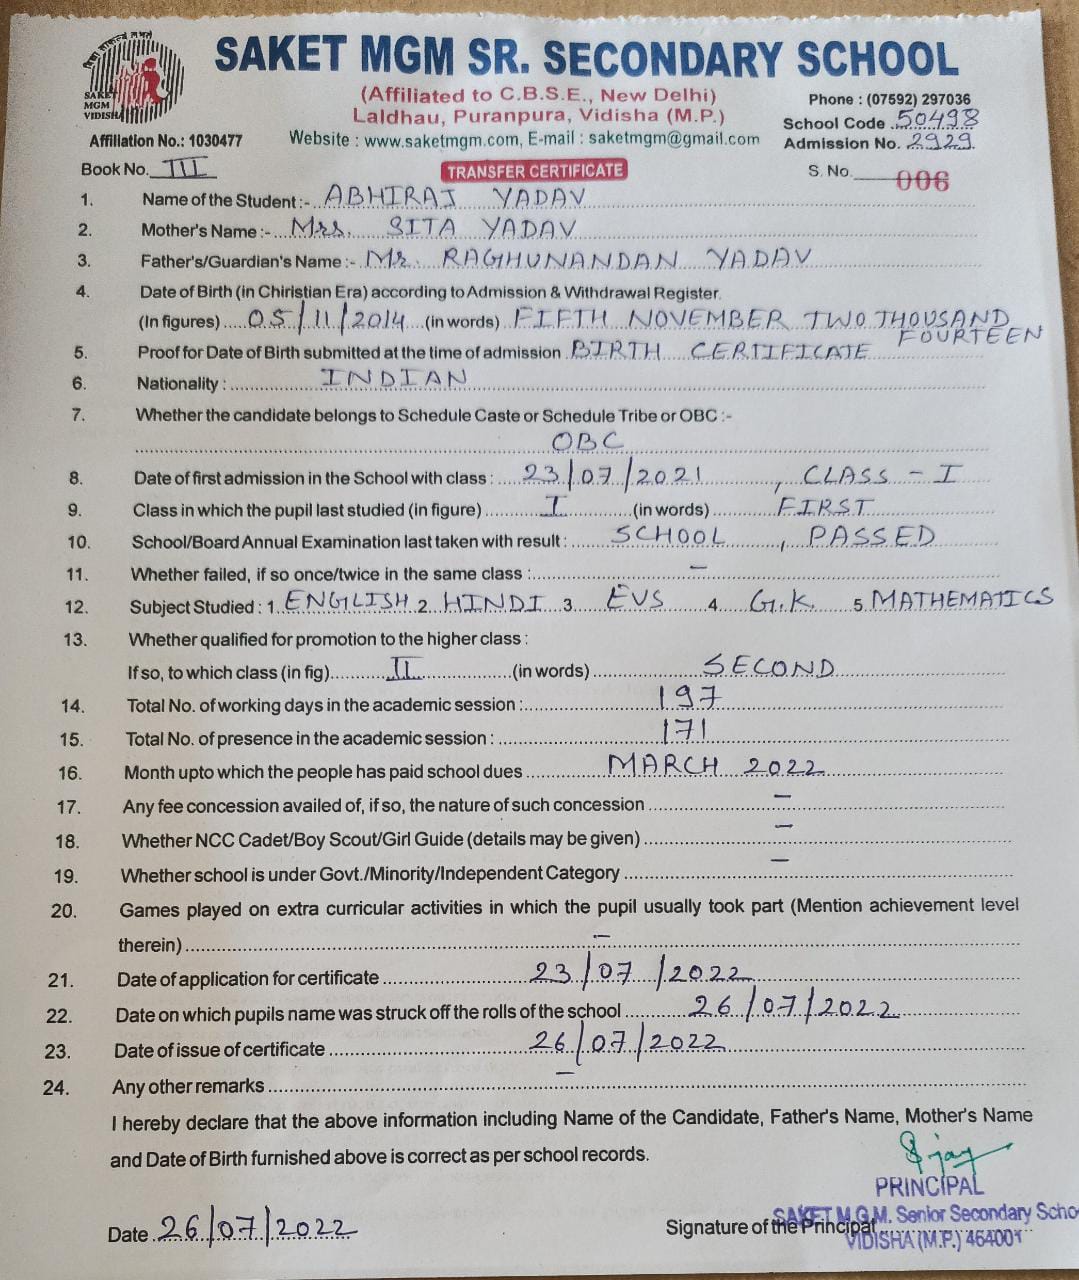 SAKET MGM SR. SECONDARY SCHOOL
SAKET
MGM
VIDISHA
(Affiliated to C.B.S.E., New Delhi)
Laldhau, Puranpura, Vidisha (M.P.)
Phone : (07592) 297036
School Code 50498
Affiliation No.: 1030477
Website : www.saketmgm.com, E-mail : saketmgm@gmail.com
Admission No. 2929
Book No. III
TRANSFER CERTIFICATE
S. No. 006
1. Name of the Student :- ABHIRAJ YADAV
2. Mother's Name :- Mrs. SITA YADAV
3. Father's/Guardian's Name :- Mr. RAGHUNANDAN YADAV
4. Date of Birth (in Chiristian Era) according to Admission & Withdrawal Register.
(In figures) 05/11/2014 (in words) FIFTH NOVEMBER TWO THOUSAND
FOURTEEN
5. Proof for Date of Birth submitted at the time of admission BIRTH CERTIFICATE
6. Nationality : INDIAN
7. Whether the candidate belongs to Schedule Caste or Schedule Tribe or OBC :-
OBC
8. Date of first admission in the School with class : 23/07/2021, CLASS - I
9. Class in which the pupil last studied (in figure) I (in words) FIRST
10. School/Board Annual Examination last taken with result : SCHOOL, PASSED
11. Whether failed, if so once/twice in the same class : –
12. Subject Studied : 1. ENGLISH 2. HINDI 3. EVS 4. G.K. 5. MATHEMATICS
13. Whether qualified for promotion to the higher class :
If so, to which class (in fig) II (in words) SECOND
14. Total No. of working days in the academic session : 197
15. Total No. of presence in the academic session : 171
16. Month upto which the people has paid school dues MARCH 2022
17. Any fee concession availed of, if so, the nature of such concession –
18. Whether NCC Cadet/Boy Scout/Girl Guide (details may be given) –
19. Whether school is under Govt./Minority/Independent Category –
20. Games played on extra curricular activities in which the pupil usually took part (Mention achievement level
therein) –
21. Date of application for certificate 23/07/2022
22. Date on which pupils name was struck off the rolls of the school 26/07/2022
23. Date of issue of certificate 26/07/2022
24. Any other remarks –
I hereby declare that the above information including Name of the Candidate, Father's Name, Mother's Name
and Date of Birth furnished above is correct as per school records.
PRINCIPAL
SAKET M.G.M. Senior Secondary Scho
Date 26/07/2022
Signature of the Principal
VIDISHA (M.P.) 464001